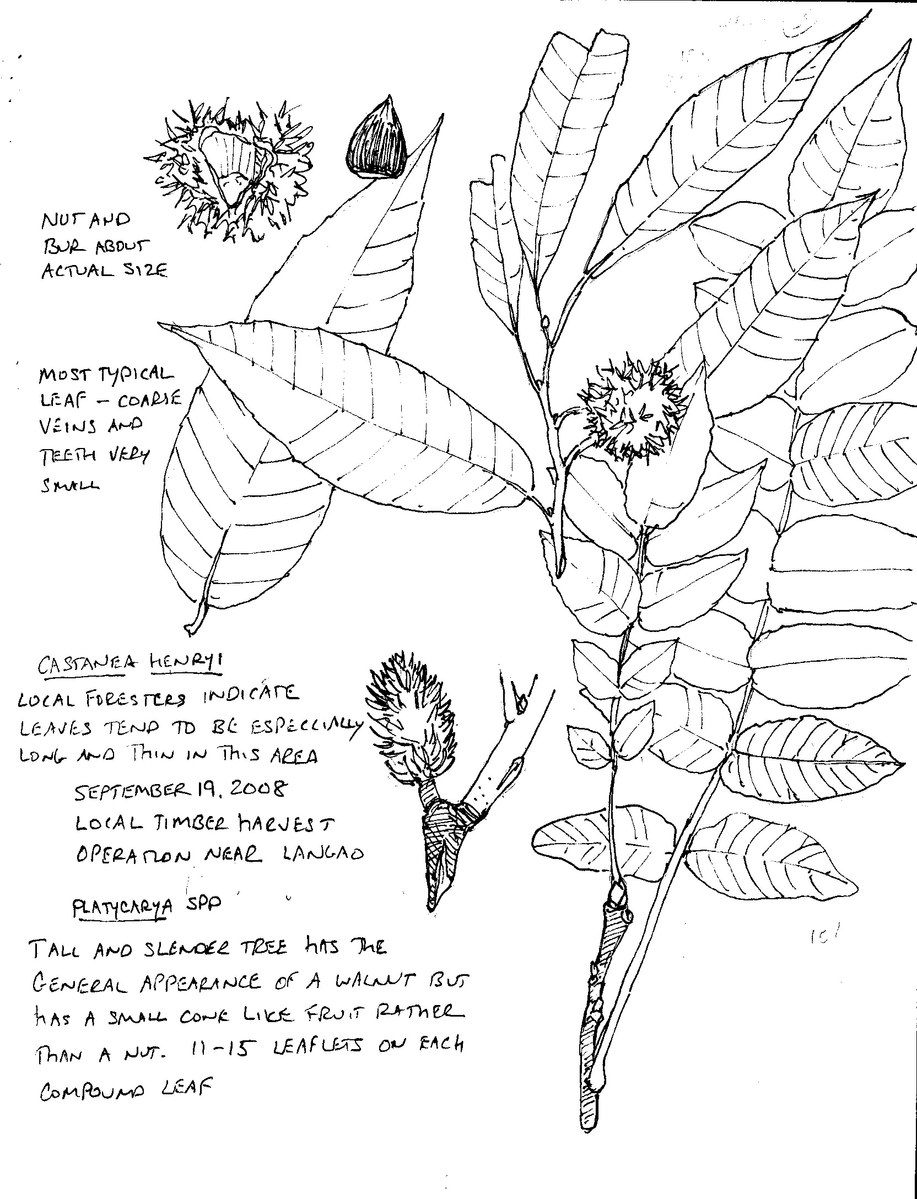 NUT AND
BUR ABOUT
ACTUAL SIZE
MOST TYPICAL
LEAF - COARSE
VEINS AND
TEETH VERY
SMALL
CASTANEA HENRYI
LOCAL FORESTERS INDICATE
LEAVES TEND TO BE ESPECIALLY
LONG AND THIN IN THIS AREA
SEPTEMBER 19, 2008
LOCAL TIMBER HARVEST
OPERATION NEAR LANGAO
PLATYCARYA SPP
TALL AND SLENDER TREE HAS THE
GENERAL APPEARANCE OF A WALNUT BUT
HAS A SMALL CONE LIKE FRUIT RATHER
THAN A NUT. 11-15 LEAFLETS ON EACH
COMPOUND LEAF